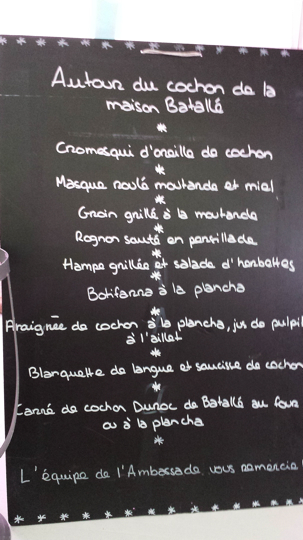 Autour du cochon de la
maison Batallé
Cromesqui d'oreille de cochon
Masque roulé moutarde et miel
Groin grillé à la moutarde
Rognon sauté en persillade
Hampe grillée et salade d'herbettes
Botifarra à la plancha
Araignée de cochon à la plancha, jus de
à l'aillet
Blanquette de langue et saucisse de cochon
Carré de cochon Duroc de Batallé au four
ou à la plancha
L'équipe de l'Ambassade vous remercie